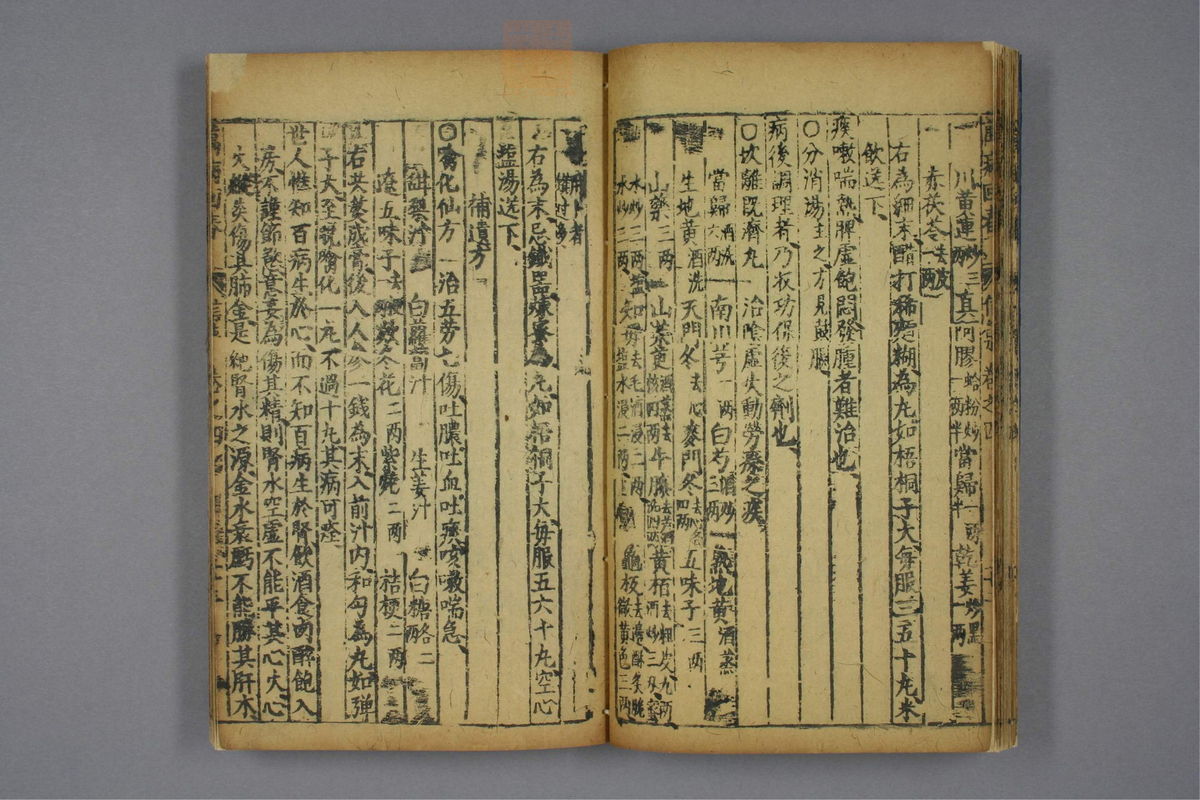 川黃連炒三兩 真阿膠蛤粉炒一兩半 當歸一兩半 乾姜一兩炒黑
赤茯苓去皮一兩
右為細末醋打稀糊為丸如梧桐子大每服三五十丸米
飲送下
痰嗽喘熱脾虛飽悶發腫者難治也
○分消湯主之方見鼓脹
病後調理者乃收功保後之劑也
○坎離既濟丸 治陰虛火動勞瘵之疾
當歸酒洗六兩 南川芎一兩 白芍酒炒三兩 熟地黃酒蒸
生地黃酒洗 天門冬去心 麥門冬去心各四兩 五味子三兩
山藥三兩 山茱萸酒蒸去核四兩 牛膝去蘆酒洗四兩 黃栢去粗皮九兩
水炒二兩 鹽 知母去毛酒浸二兩 鹽水浸二兩 龜板去邊酥炙黃色三兩
右為末忌鐵器煉蜜為丸如梧桐子大每服五六十丸空心
盐湯送下
補遺方
○噙化仙方 治五勞七傷吐膿吐血吐痰咳嗽喘急
甜梨汁 白蘿蔔汁 生姜汁 白糖各二兩
遼五味子去梗 款冬花二兩 紫菀二兩 桔梗二兩
右共熬成膏後入人參一錢為末入前汁內和勻為丸如彈
子大至晚噙化一丸不過十丸其病可痊
世人惟知百病生於心而不知百病生於腎飲酒食肉醉飽入
房不謹節慾意妄為傷其精則腎水空虛不能平其心火心
火縱炎傷其肺金是絕腎水之源金水衰虧不能勝其肝木